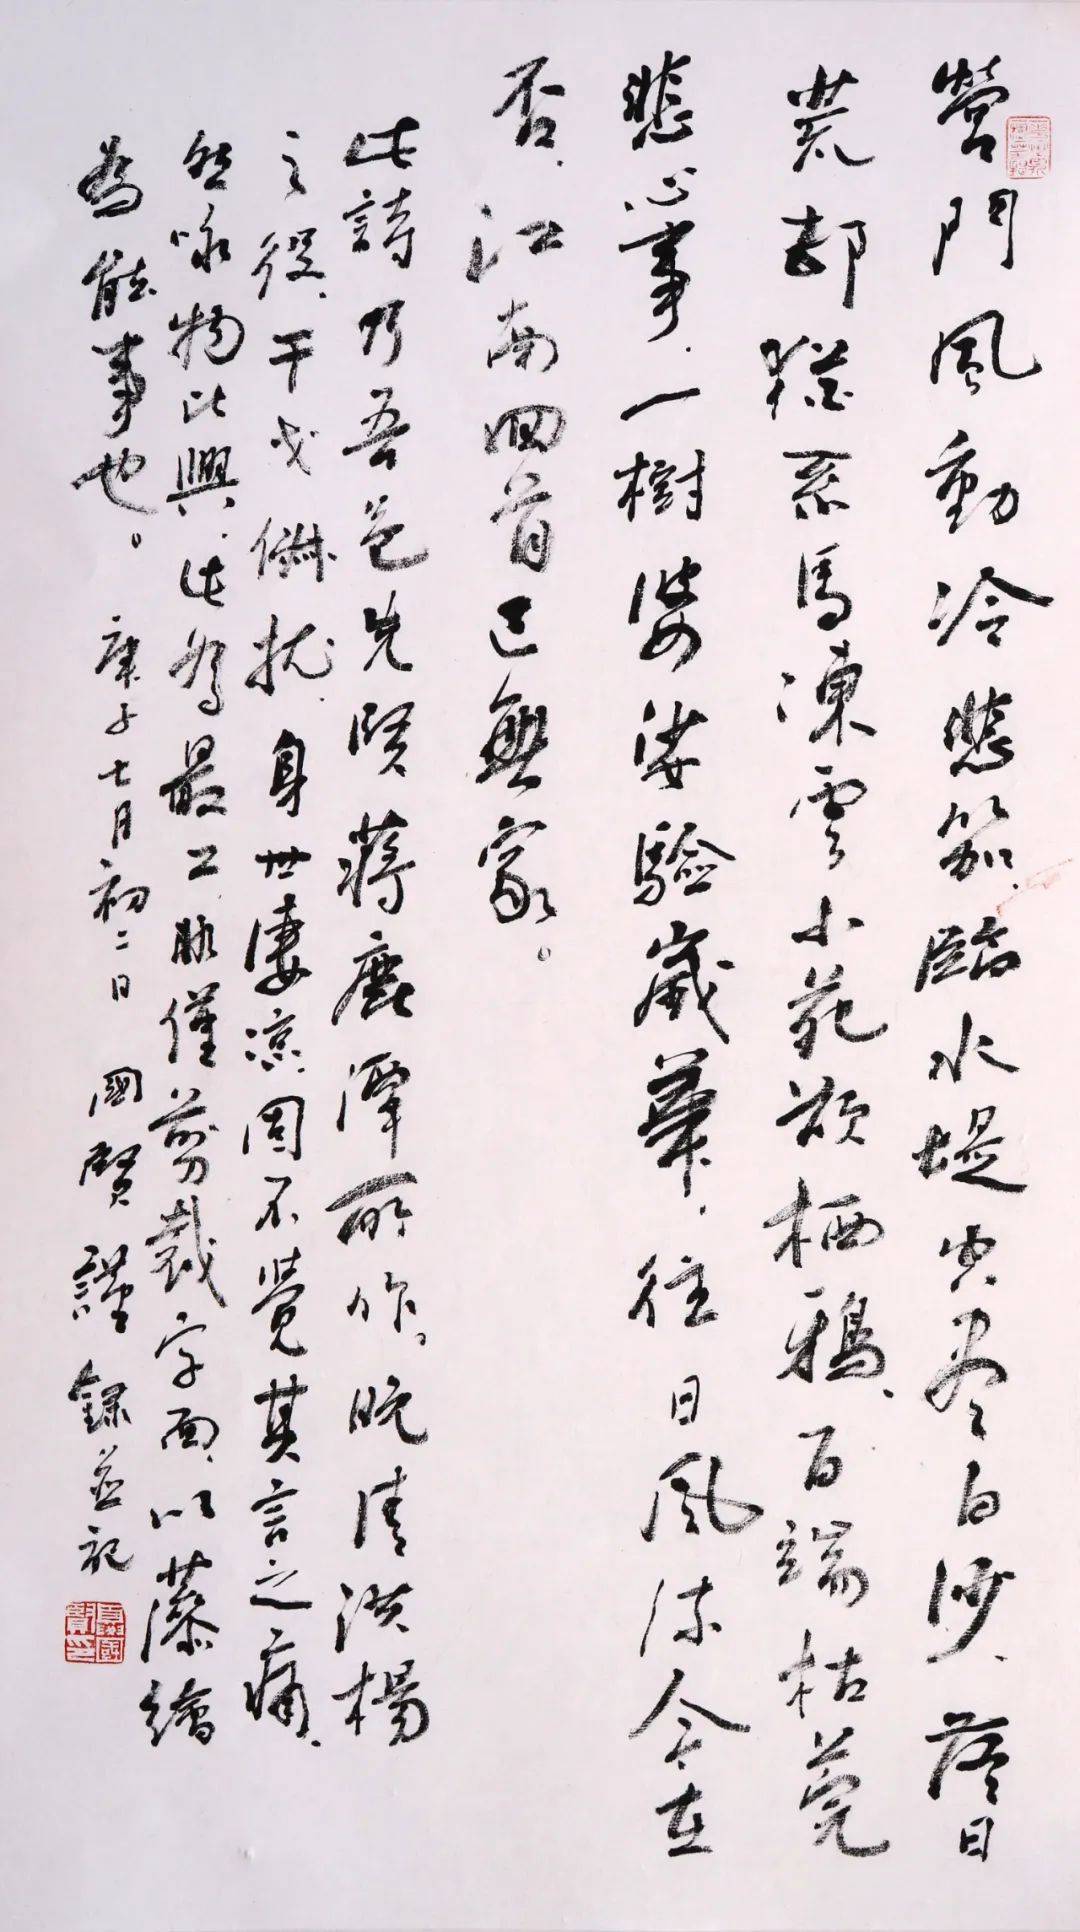 營門風動冷悲笳、臨水堤空盡白沙、落日
荒邨猶系馬凍雲小苑欲栖鴉、百端枯菀
悲心事、一樹婆娑驗歲華、往日風流今在
否、江南回首已無家。
此詩乃吾邑先賢蔣鹿潭所作。晚清洪楊
之役、干戈俶扰、身世淒涼、固不覺其言之痛、
然咏物比興、此為最工、眎僅剪裁字面、以藻繪
為能事也。庚子七月初二日 國賢謹錄並記